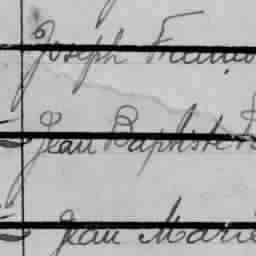 Joseph
Jean Baptiste
Jean Marie